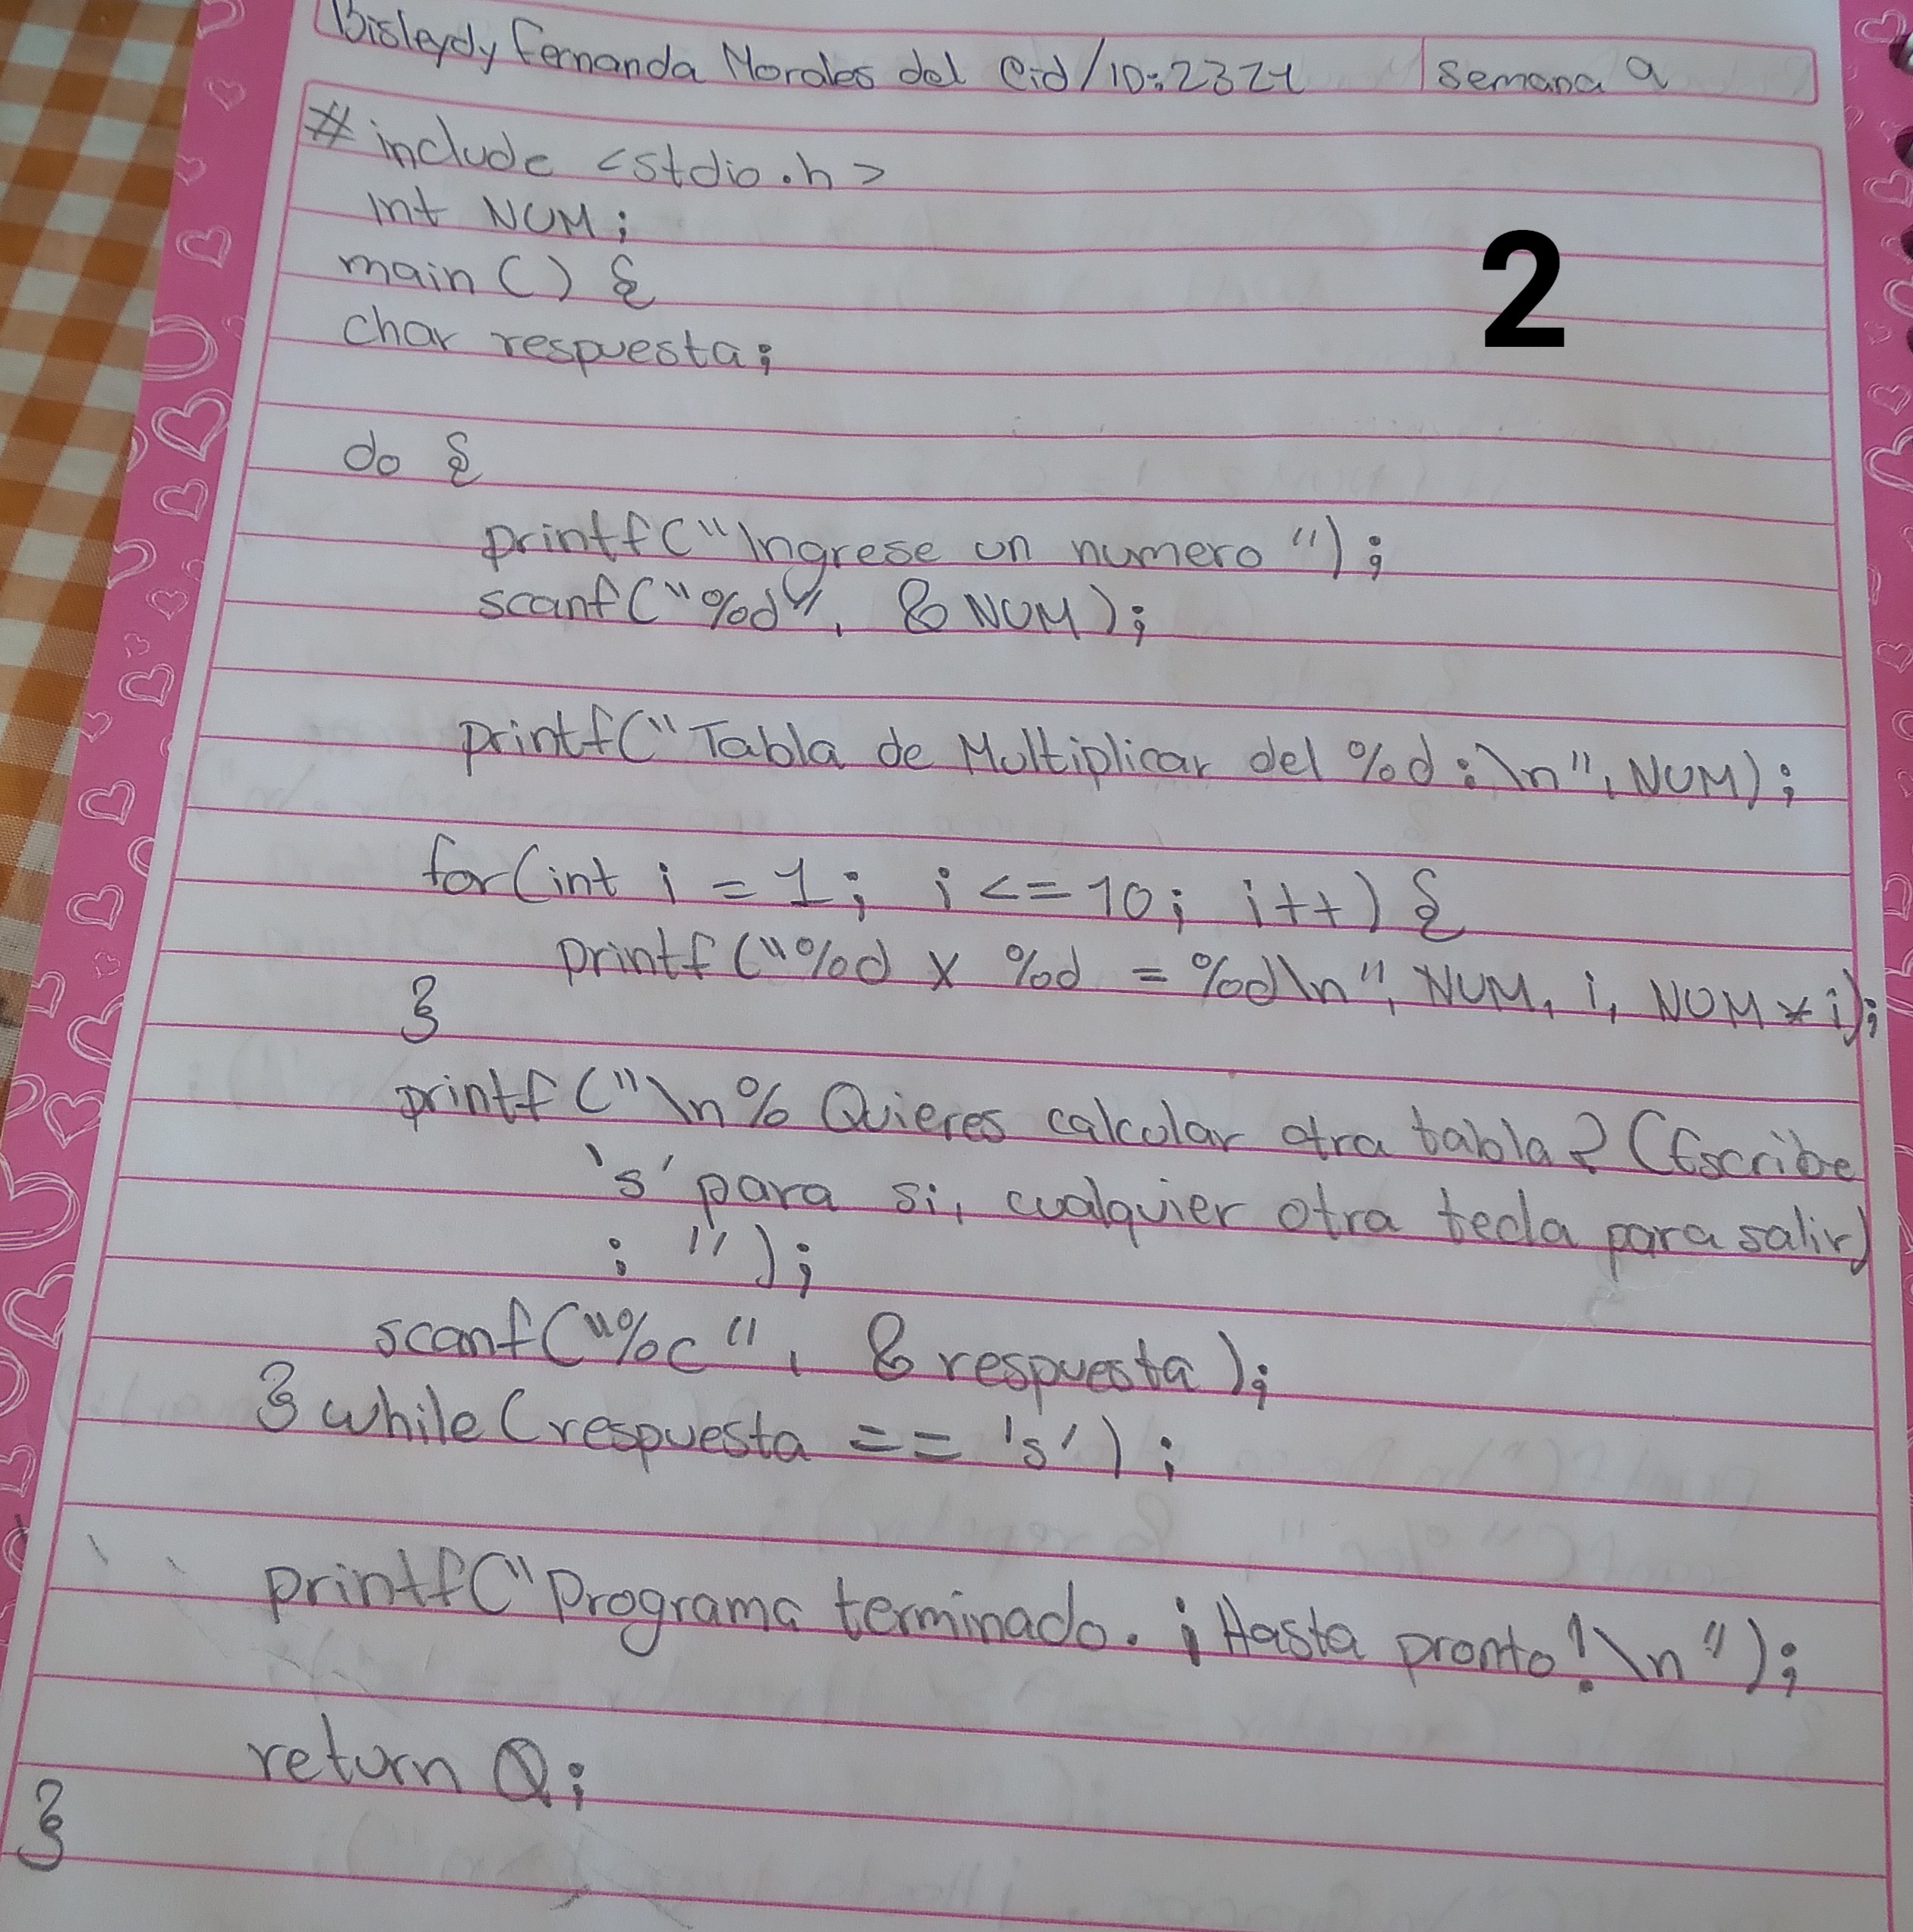 Bisleydy Fernanda Morales del Cid/10:2321 Semana 9
#include <stdio.h>
int NUM;
main () {
char respuesta;
2
do {
printf("Ingrese un numero");
scanf("%d", &NUM);
printf("Tabla de Multiplicar del %d:\n", NUM);
for(int i = 1; i <= 10; i++) {
printf("%d x %d = %d\n", NUM, i, NUM * i);
}
printf("\n% Quieres calcular otra tabla? (Escribe
's' para si, cualquier otra tecla para salir)
: ");
scanf("%c", &respuesta);
} while (respuesta == 's');
printf("Programa terminado. ¡Hasta pronto!\n");
return 0;
}